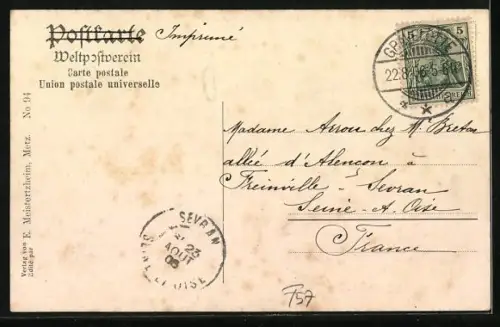 Postkarte Imprimé
Weltpostverein
Carte postale
Union postale universelle
5 5
22.8.
Madame Arrou chez M. Breton
allée d'Alençon à
Freinville - Sevran
Seine-et-Oise
France
SEVRAN
23
AOUT
06
SEINE-ET-OISE
F57
Verlag von E. Meistertzheim, Metz. No 94
Edité par